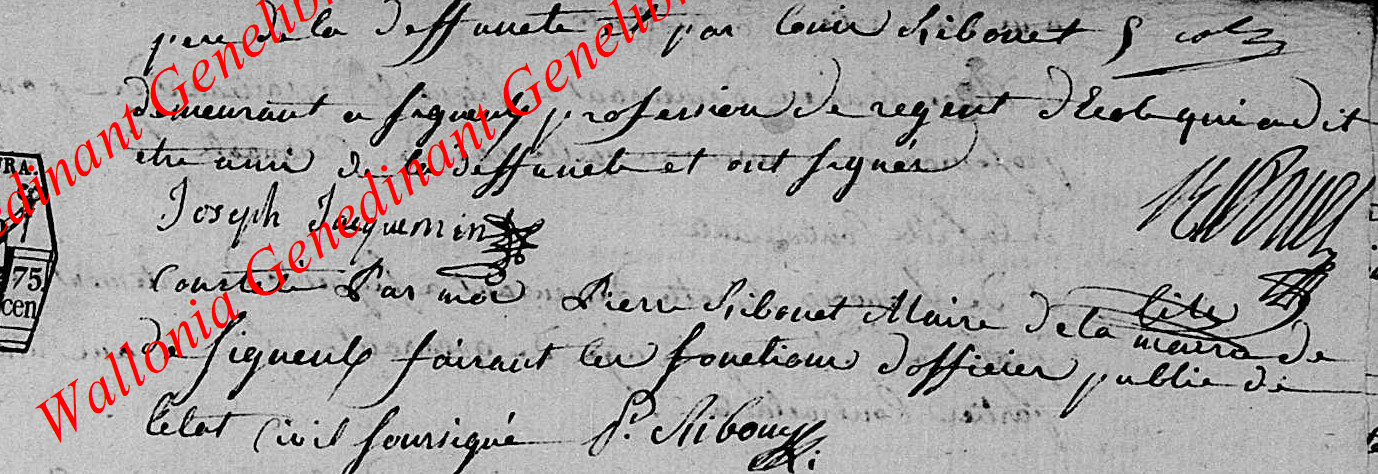 pere de la deffuncte et par louis Ribouet
demeurant a signeulx profession de regent d'Ecole qui a dit
etre ami de la deffuncte et ont signés
Joseph Jacquemin
Constaté Par moi Pierre Ribouet Maire de la
mairie de
de signeulx faisant les fonctions d'officier public de
l'etat Civil soussigné P. Ribouet
RA.
75
cen
Wallonia Genedinant Genelibre
Wallonia Genedinant Genelibre